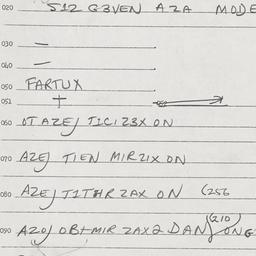 020 512 G3VEN AZA MODE
030 —
040 —
050 FARTUX
051 +
060 OT AZEJ TICIZ3X ON
070 AZEJ TIEN MIRZIX ON
080 AZEJ TITHR ZAX ON (256
(210)
090 AZOJ OB+MIR ZAX2 DAN ONG